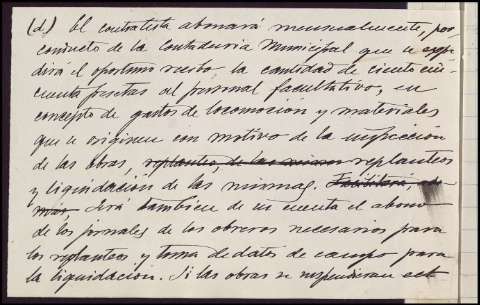 (d.) El contratista abonará mensualmente, por
conducto de la Contaduria Municipal que le expe-
dirá el oportuno recibo la cantidad de ciento cin-
cuenta pesetas al personal facultativo, en
concepto de gastos de locomoción y materiales
que se originen con motivo de la inspección
de las obras, replanteo, de las mismas replanteos
y liquidación de las mismas. Facilitará, ade-
más, Será tambien de su cuenta el abono
de los jornales de los obreros necesarios para
los replanteos y toma de datos de campo para
la liquidacion. Si las obras se suspendieran est